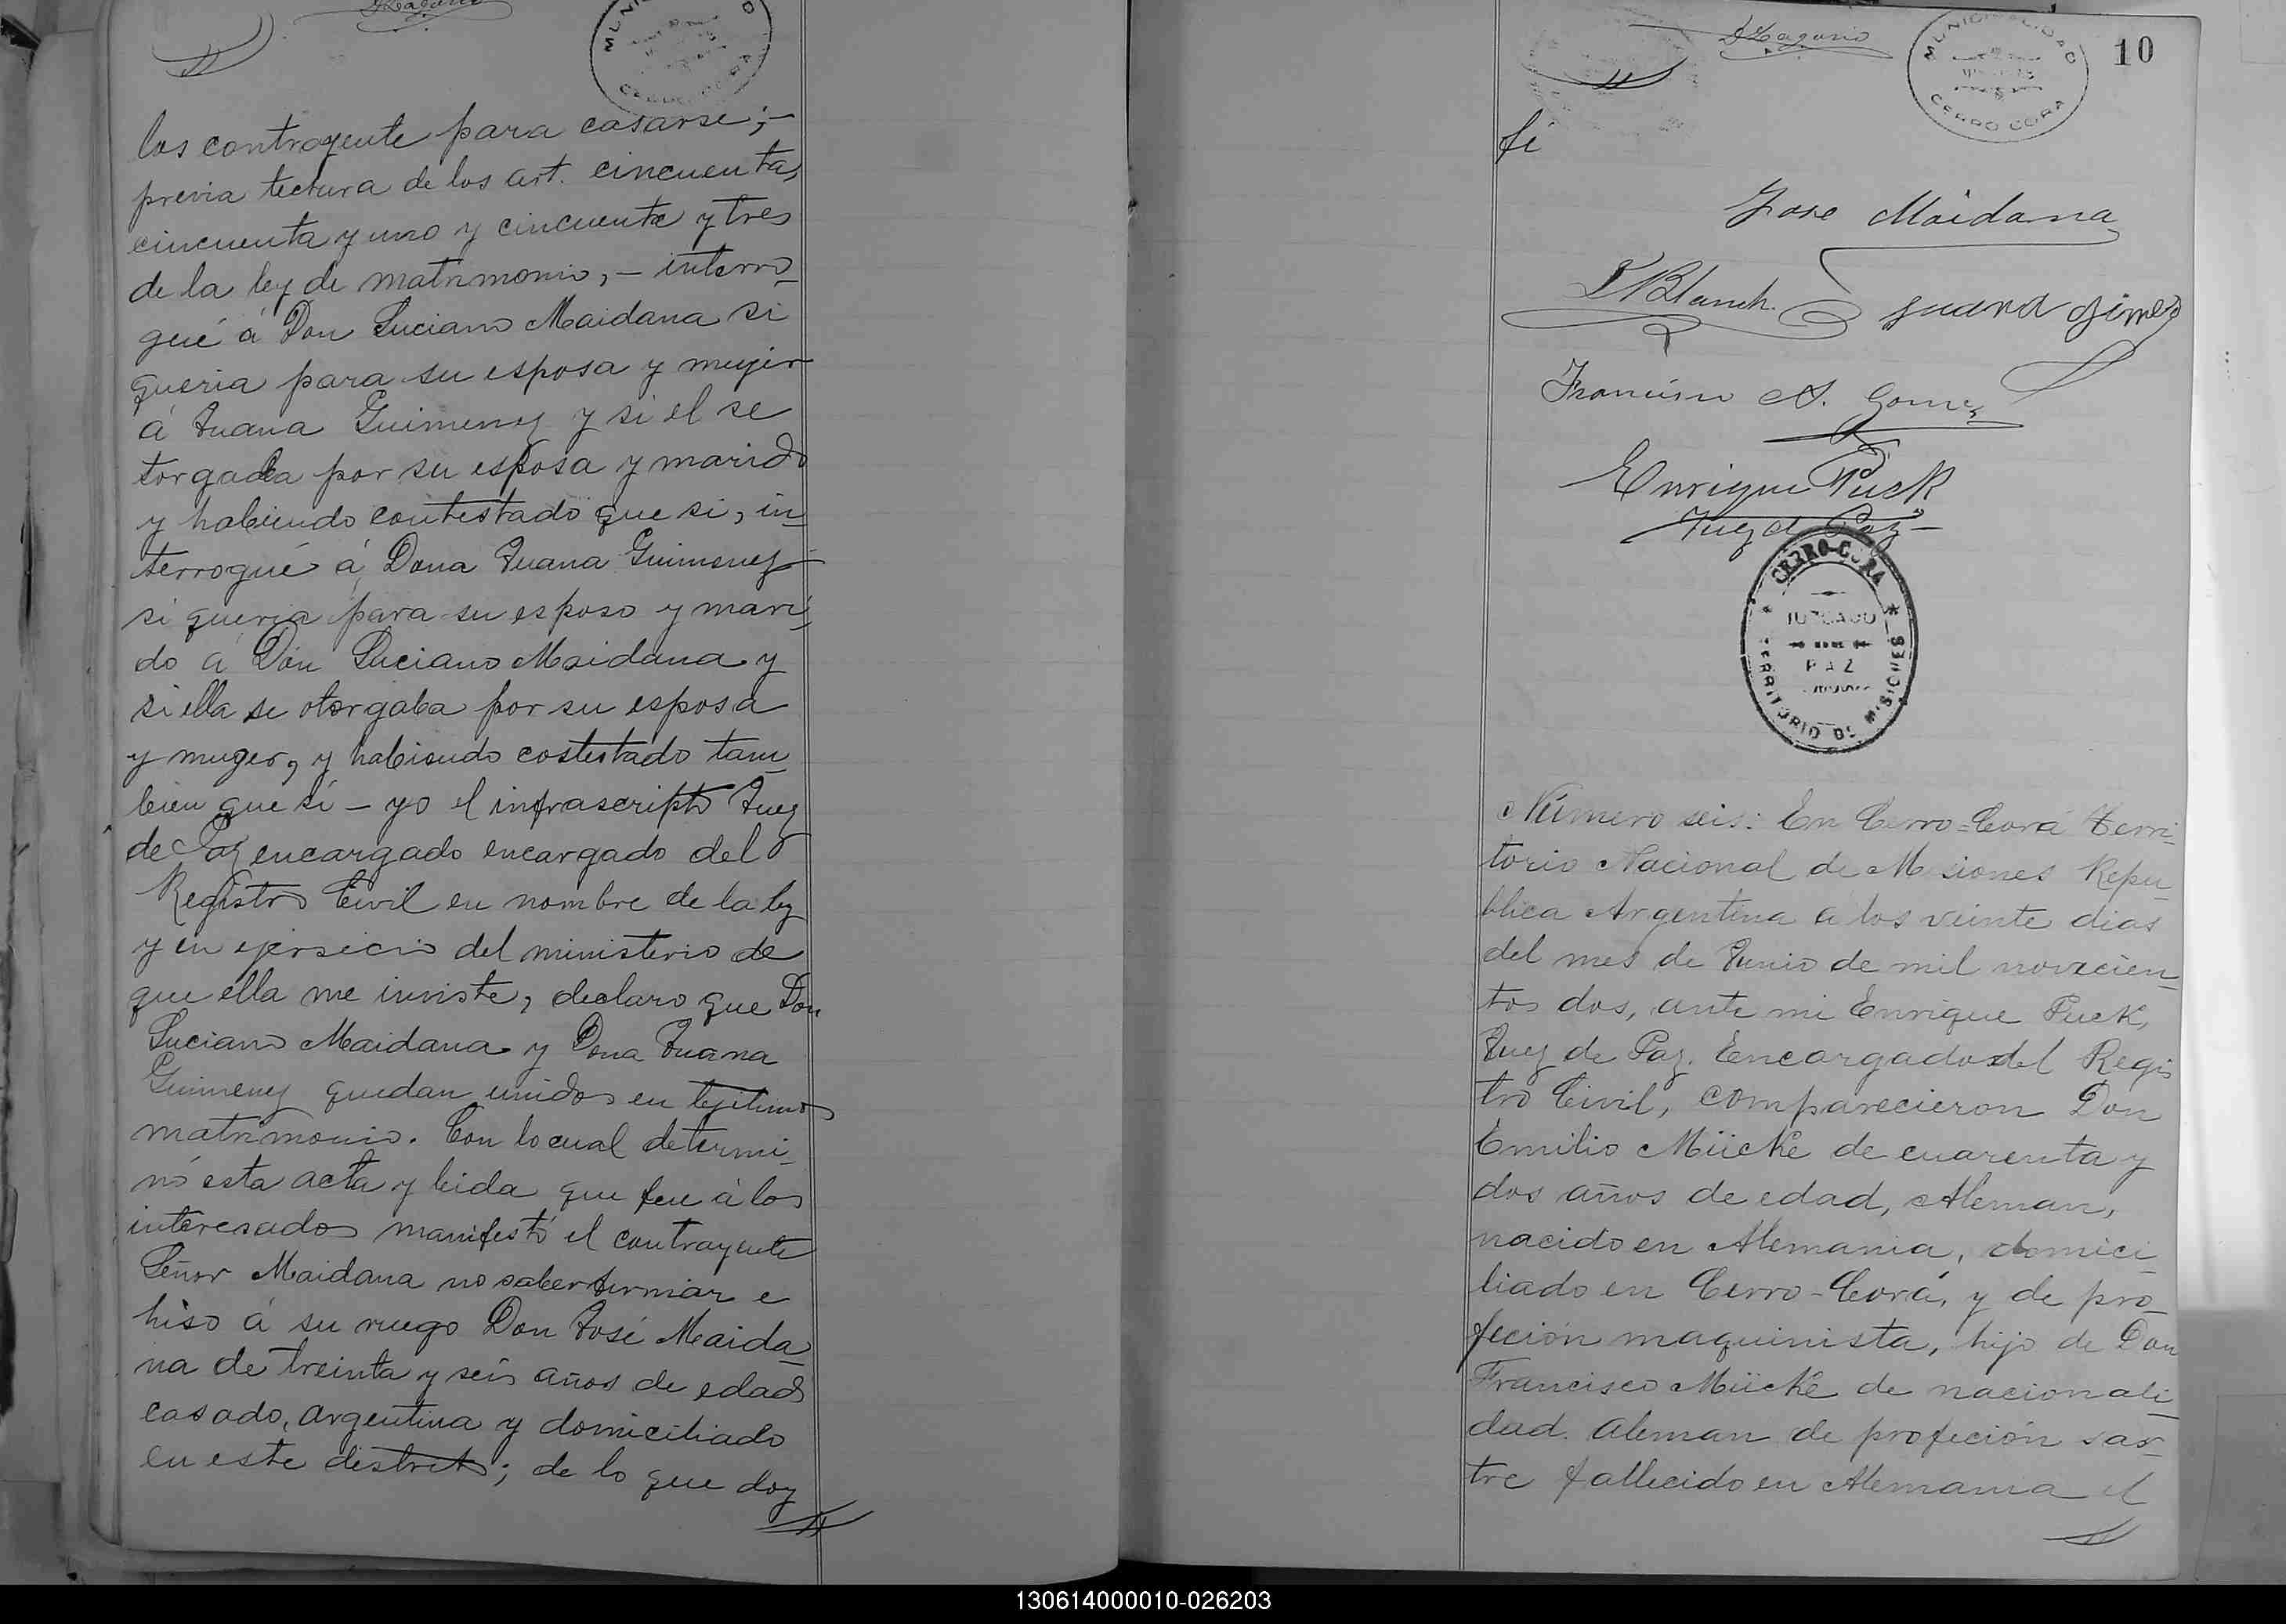 MUNICIPALIDAD
CERRO CORA
los contrayente para casarse;-
previa lectura de los art. cincuenta,
cincuenta y uno y cincuenta y tres
de la ley de matrimonio, - interro
gué á Don Luciano Maidana si
queria para su esposa y mujer
á Juana Guimenez y si el se
torgaba por su esposa y marido
y habiendo contestado que si, in
terrogué á Dona Juana Guimenez
si queria para su esposo y mari,
do á Don Luciano Maidana y
si ella se otorgaba por su esposa
y muger, y habiendo costestado tam
bien que si - yo el infrascripto Juez
de Paz encargado encargado del
Registro Civil en nombre de la ley
y en ejersicio del ministerio de
que ella me inviste, declaro que Don
Luciano Maidana y Dona Juana
Guimenez quedan unidos en lejitimo
matrimonio. Con lo cual determi
nó esta acta y leida que fue á los
interesados manifestó el contrayente
Señor Maidana no saber firmar e
hiso á su ruego Don José Maida
na de treinta y seis años de edad
casado, argentina y domiciliado
en este distrito; de lo que doy
MUNICIPALIDAD
CERRO CORA
10
fé
Jose Maidana
Blanch. Juana Gimez
Francisco A. Gomez
Enrique Puck
Juez de Paz
CERRO-CORA
JUZGADO
DE
PAZ
TERRITORIO DE MISIONES
Número seis: En Cerro-Corá Terri-
torio Nacional de Misiones Repu
blica Argentina á los veinte dias
del mes de Junio de mil novecien
tos dos, ante mi Enrique Puck,
Juez de Paz. Encargado del Regis
tro Civil, comparecieron Don
Emilio Mücke de cuarenta y
dos años de edad, Aleman,
nacido en Alemania, domici
liado en Cerro-Corá, y de pro
feción maquinista, hijo de Don
Francisco Mücke de nacionali
dad. aleman de profeción sas-
tre fallecido en Alemania el
130614000010-026203